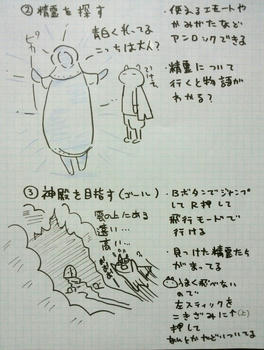 ② 精霊を探す
ピカー
青白く光ってる
こっちは大人?
・使えるエモートや
かみかたなど
アンロックできる
・精霊について
行くと物語が
わかる?
③ 神殿を目指す(ゴール)
雲の上にある
遠い…
高い…
・Bボタンでジャンプ
してR押して
飛行モードで
行ける
・見つけた精霊たち
がまってる
うまく飛べない
ので
左スティックを
こきざみに↑(上)
押して